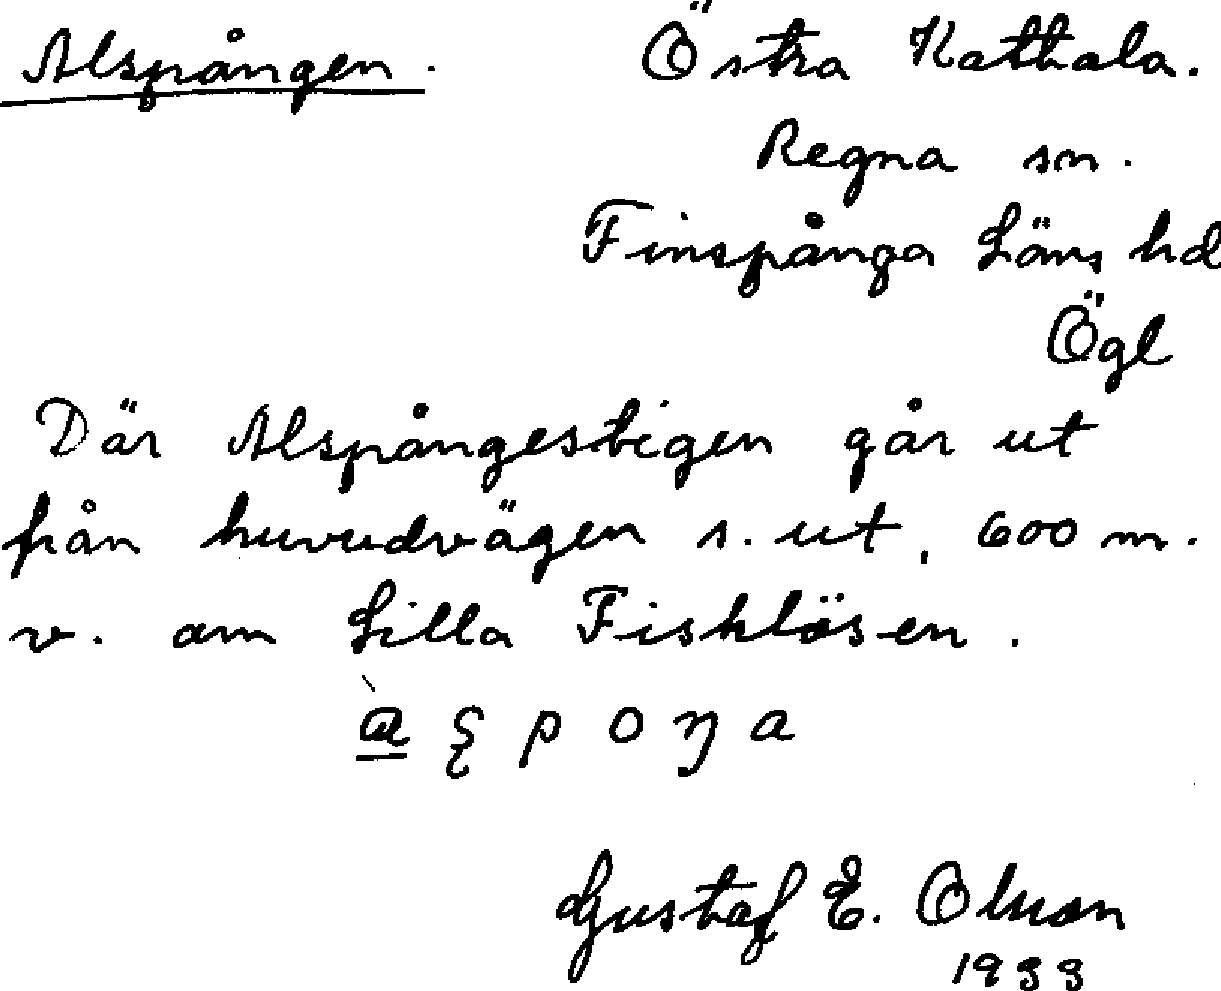 Alspången. Östra Kattala.
Regna sn.
Finspånga Läns hd
Ögl
Där Alspångestigen går ut
från huvudvägen s. ut, 600 m.
v. om Lilla Fisklösen.
Gustaf E. Olsson
1933